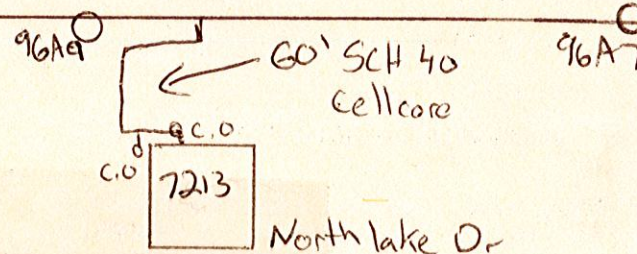 96A9
60' SCH 40
Cellcore
96A7
C.O
C.O
7213
North lake Dr